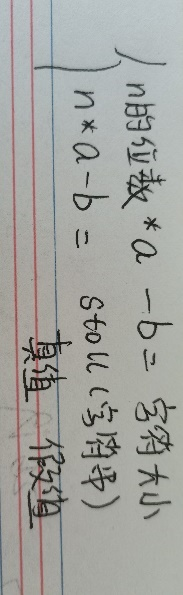 n的位数*a-b=字符大小
n*a-b= stoll(字符串)
真值 假值